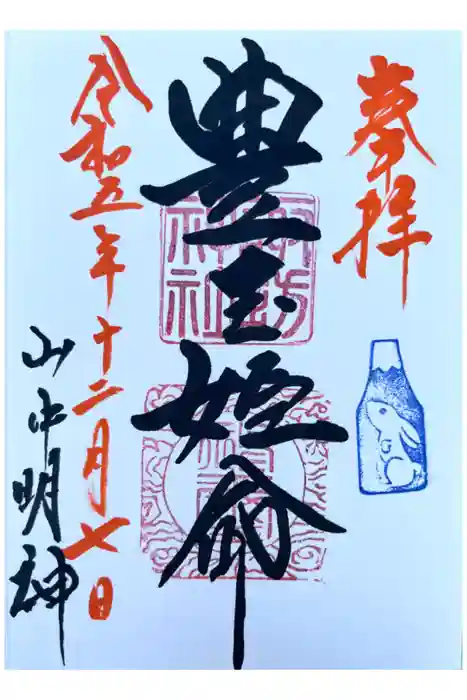 奉拝
豊玉姫命
令和五年十二月七日
山中明神